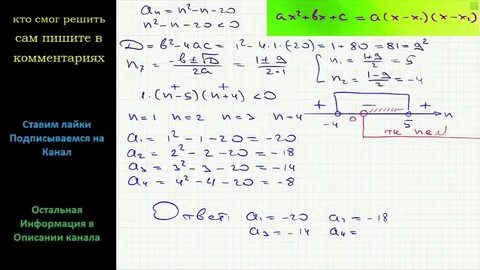 кто смог решить
сам пишите в
комментариях
Ставим лайки
Подписываемся на
Канал
Остальная
Информация в
Описании канала
aₙ = n² - n - 20
n² - n - 20 < 0
ax² + bx + c = a(x - x₁)(x - x₂)
D = b² - 4ac = 1² - 4·1·(-20) = 1 + 80 = 81 = 9²
n₁ = (-b ± √D)/2a = (1 ± 9)/2·1
n₁ = (1+9)/2 = 5
n₂ = (1-9)/2 = -4
1·(n-5)(n+4) < 0
+ - +
-4 0 5 n
n=1 n=2 n=3 n=4
т.к n∈N
a₁ = 1² - 1 - 20 = -20
a₂ = 2² - 2 - 20 = -18
a₃ = 3² - 3 - 20 = -14
a₄ = 4² - 4 - 20 = -8
Ответ: a₁ = -20 a₂ = -18
a₃ = -14 a₄ =